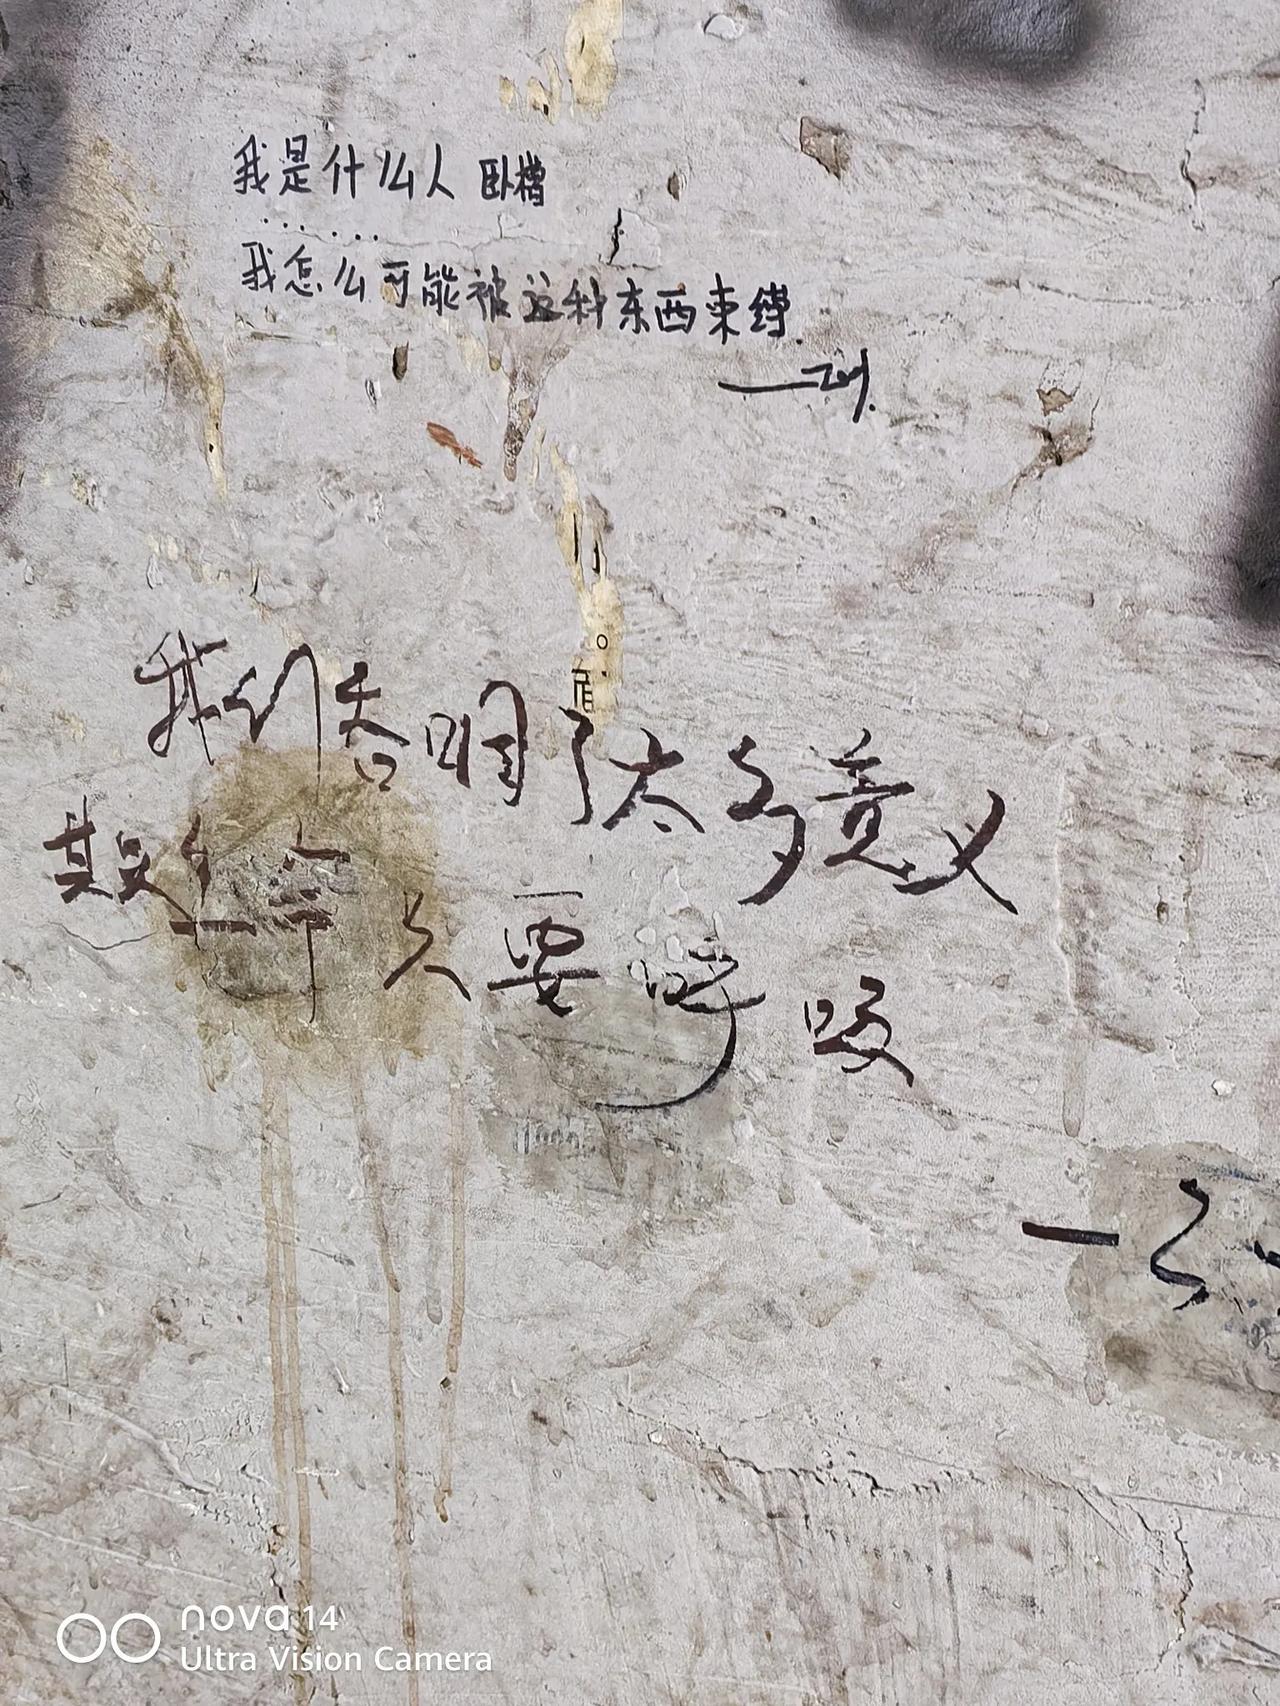 我是什么人 卧槽
......
我怎么可能被这种东西束缚
我们告明了太多意义
其实生命只要呼吸
nova 14
Ultra Vision Camera